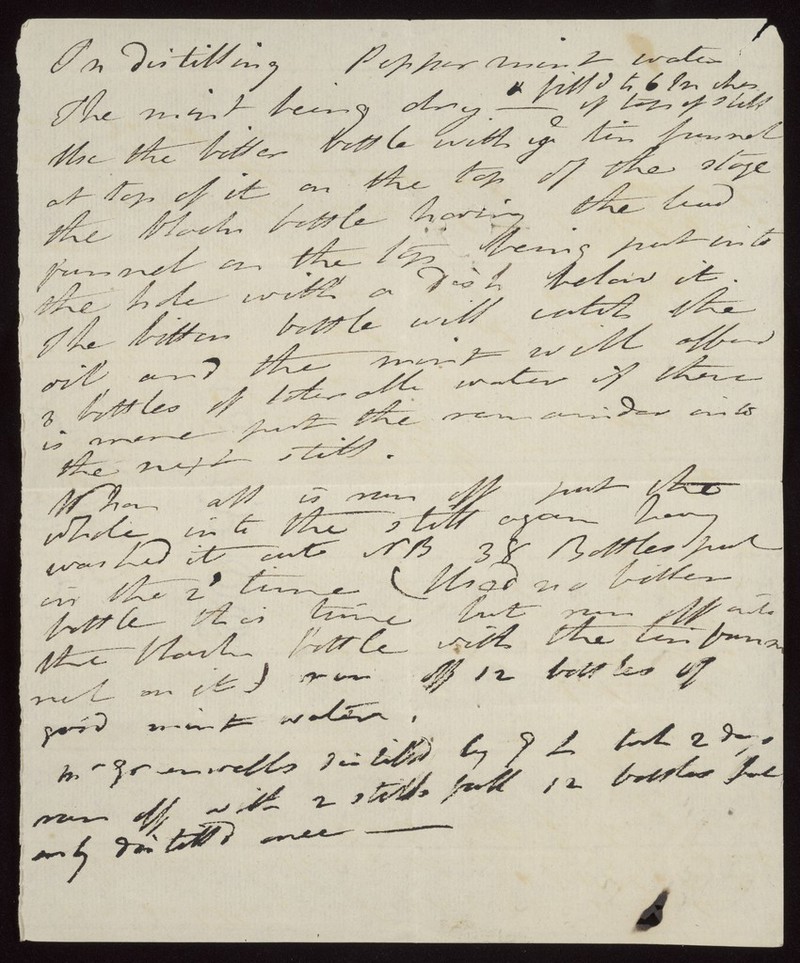 In distilling Peppermint water
The mint being dry — & fill'd to 6 Inches
of top of still
Use the bitter bottle with ye tin funnel
at top of it on the top of the stage
the black bottle having the lead
funnel on the top being put into
the hole with a dish below it.
The bitter bottle will catch the
oil and the mint will afford
3 bottles of tolerable water if there
is more put the remainder into
the next still.
When all is run off put the
whole into the still again having
washed it out NB 38 Bottles put
in the 2d time (Used no bitter
bottle this time but run off into
the black bottle with the tin fun
nel on it) run off 12 bottles of
good mint water.
Mr Greenwells distill'd by took 2 days
run off with 2 stills full 12 bottles but
only distill'd once —